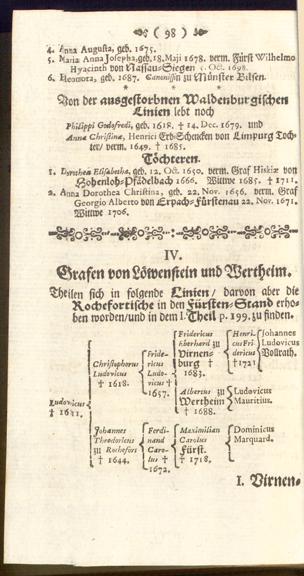 ( 98 )
4. Anna Augusta, geb. 1675.
5. Maria Anna Josepha, geb. 18. Maji 1678. verm. Fürst Wilhelmo
Hyacinth von Nassau-Siegen 5. Oct. 1698.
6. Eleonora, geb. 1687. Canonissin zu Münster Bilsen.
* * *
Von der ausgestorbnen Waldenburgischen
Linien lebt noch
Philippi Godofredi, geb. 1618. † 14. Dec. 1679. und
Annæ Christinæ, Henrici Erb-Schencken von Limpurg Toch-
ter/ verm. 1649. † 1685.
Töchteren.
1. Dorothea Elisabetha, geb. 12. Oct. 1650. verm. Graf Hiskiæ von
Hohenloh-Pfädelbach 1666. Wittwe 1685. † 1711.
2. Anna Dorothea Christina, geb. 22. Nov. 1656. verm. Graf
Georgio Alberto von Erpach-Fürstenau 22. Nov. 1671.
Wittwe 1706.
IV.
Grafen von Löwenstein und Wertheim.
Theilen sich in folgende Linien/ darvon aber die
Rochefortische in den Fürsten-Stand erho-
ben worden/ und in dem I. Theil p. 199. zu finden.
Ludovicus
† 1611.
Christophorus
Ludovicus
† 1618.
Fride-
ricus
Ludo-
vicus †
1657.
Fridericus
Eberhard zu
Virnen-
burg †
1683.
Henri-
cus Fri-
dericus
† 1721
Johannes
Ludovicus
Vollrath.
Albertus zu
Wertheim
† 1688.
Ludovicus
Mauritius.
Johannes
Theodoricus
zu Rochefort
† 1644.
Ferdi-
nand
Caro-
lus †
1672.
Maximilian
Carolus
Fürst.
† 1718.
Dominicus
Marquard.
I. Virnen-